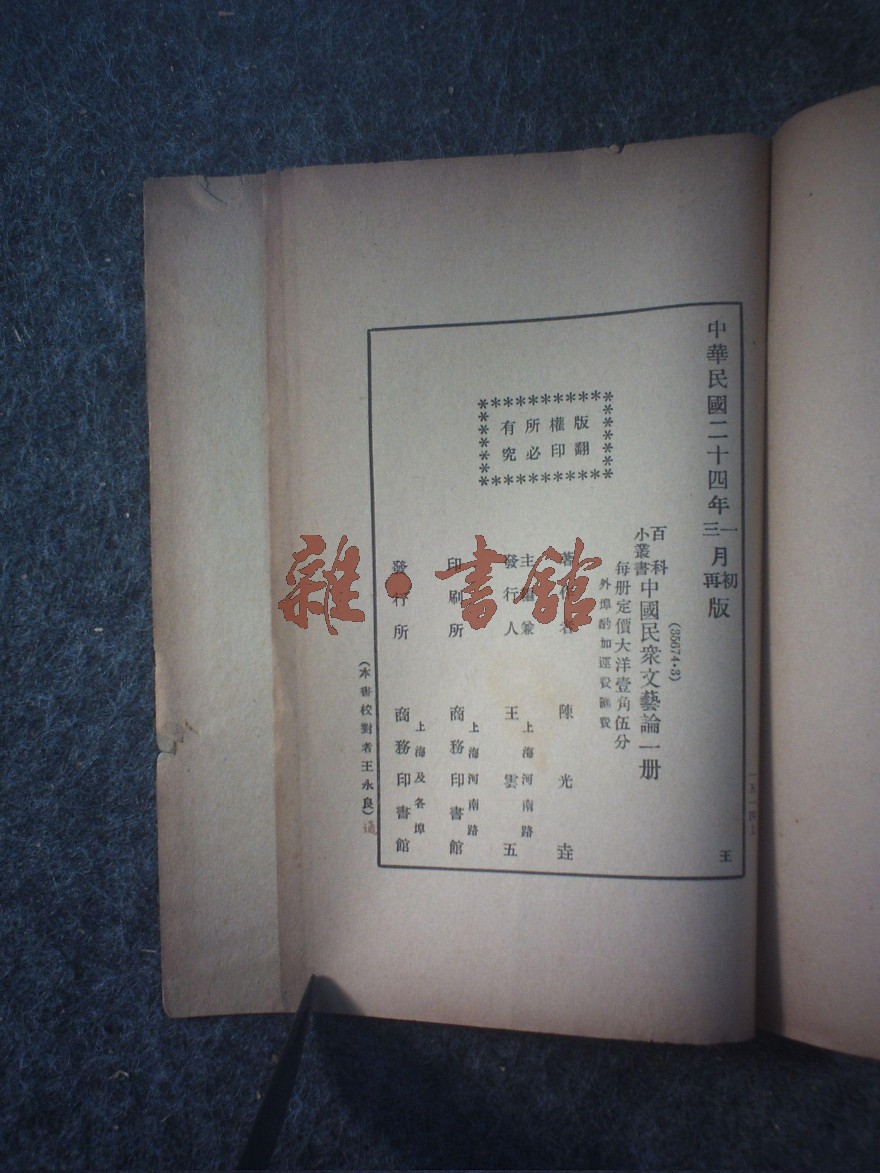 中華民國二十四年一三月初再版
王
一五一四上
(35674·3)
百科
小叢書
中國民衆文藝論一册
每册定價大洋壹角伍分
外埠酌加運費匯費
版權所有
翻印必究
著作者 陳光垚
主編兼
發行人 上海河南路
王雲五
印刷所 上海河南路
商務印書館
發行所 上海及各埠
商務印書館
(本書校對者王永良)
雜·書館